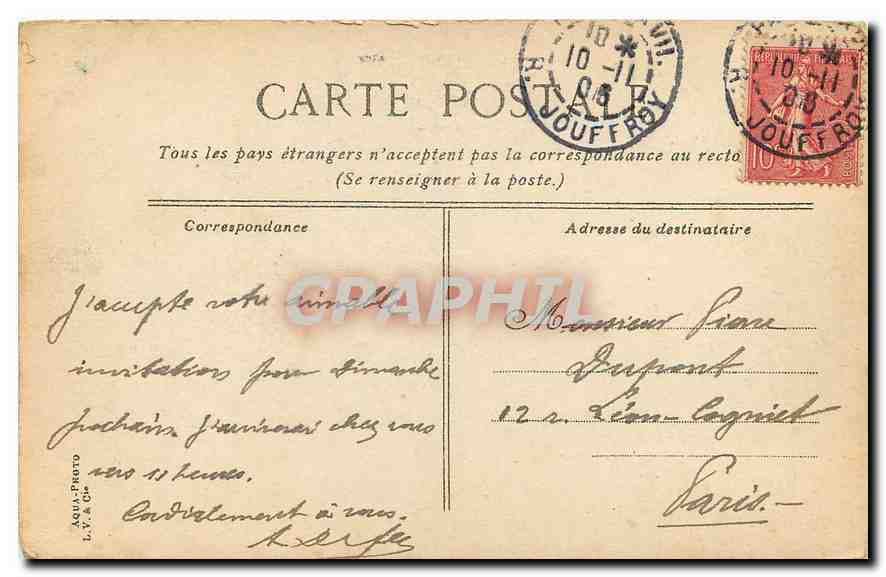 CARTE POSTALE
Tous les pays étrangers n'acceptent pas la correspondance au recto
(Se renseigner à la poste.)
10
10 - 11
06
R. JOUFFROY
RÉPUBLIQUE FRANÇAISE
10
10 - 11
06
R. JOUFFROY
10
Correspondance
J'accepte votre aimable
invitation pour Dimanche
prochain. J'arriverai chez vous
vers 11 heures.
Cordialement à vous.
Adresse du destinataire
Monsieur Pierre
Dupont
12 r. Léon-Cogniet
Paris.-
AQUA-PHOTO
L.V. & Cie
CPAPHIL